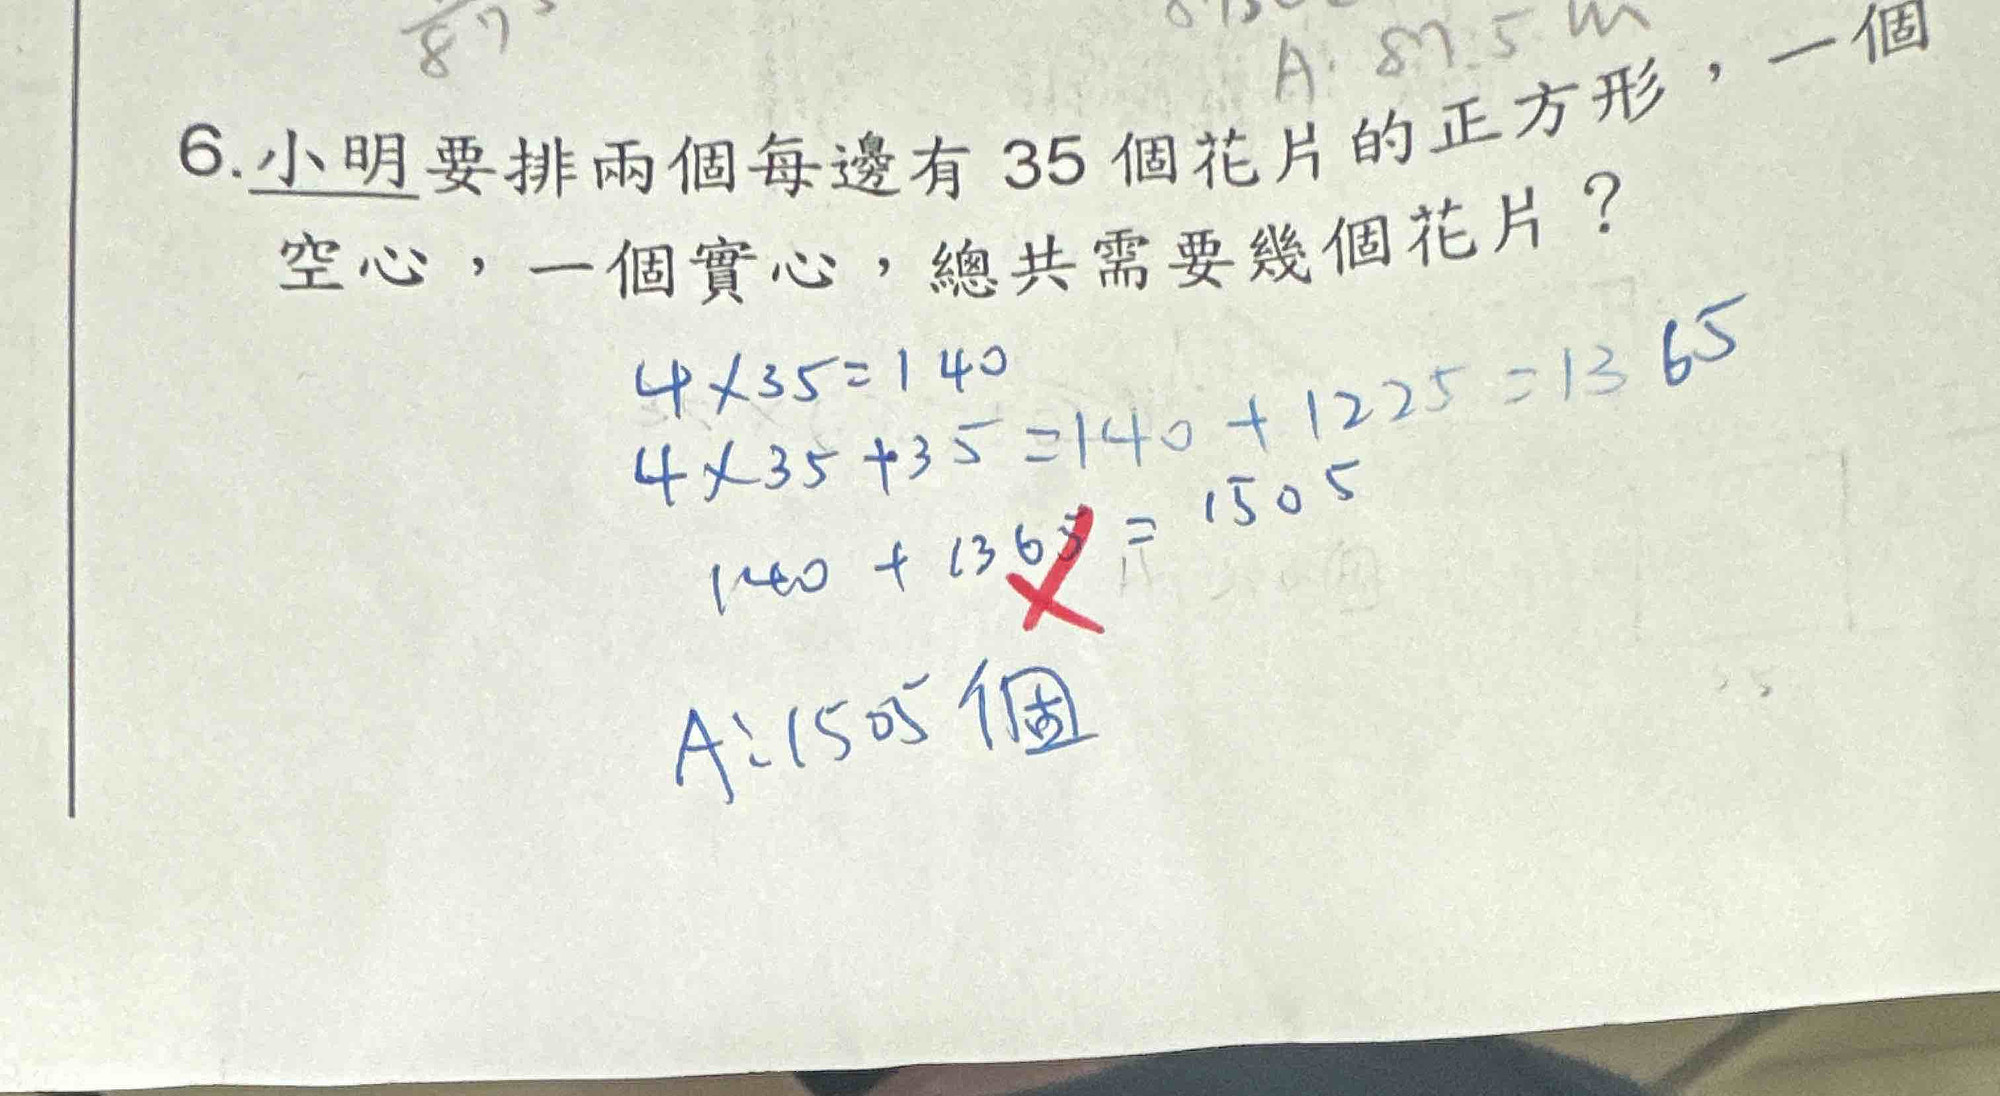 A: 87.5 m
6.小明要排兩個每邊有 35 個花片的正方形，一個
空心，一個實心，總共需要幾個花片？
4×35=140
4×35+35=140+1225=1365
140+1365=1505
A:1505個